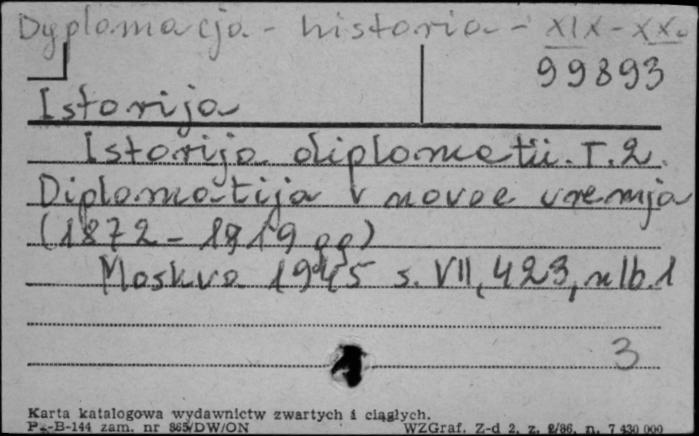 Dyplomacja - historia - XIX-XX.
99893
Istorija
Istorija diplomatii. T. 2.
Diplomatija v novoe vremja
(1872-1919 gg)
Moskva 1945 s. VII, 423, nlb. 1
3
Karta katalogowa wydawnictw zwartych i ciągłych.
Pu-B-144 zam. nr 865/DW/ON
WZGraf. Z-d 2, z. 2/86, n. 7 430 000